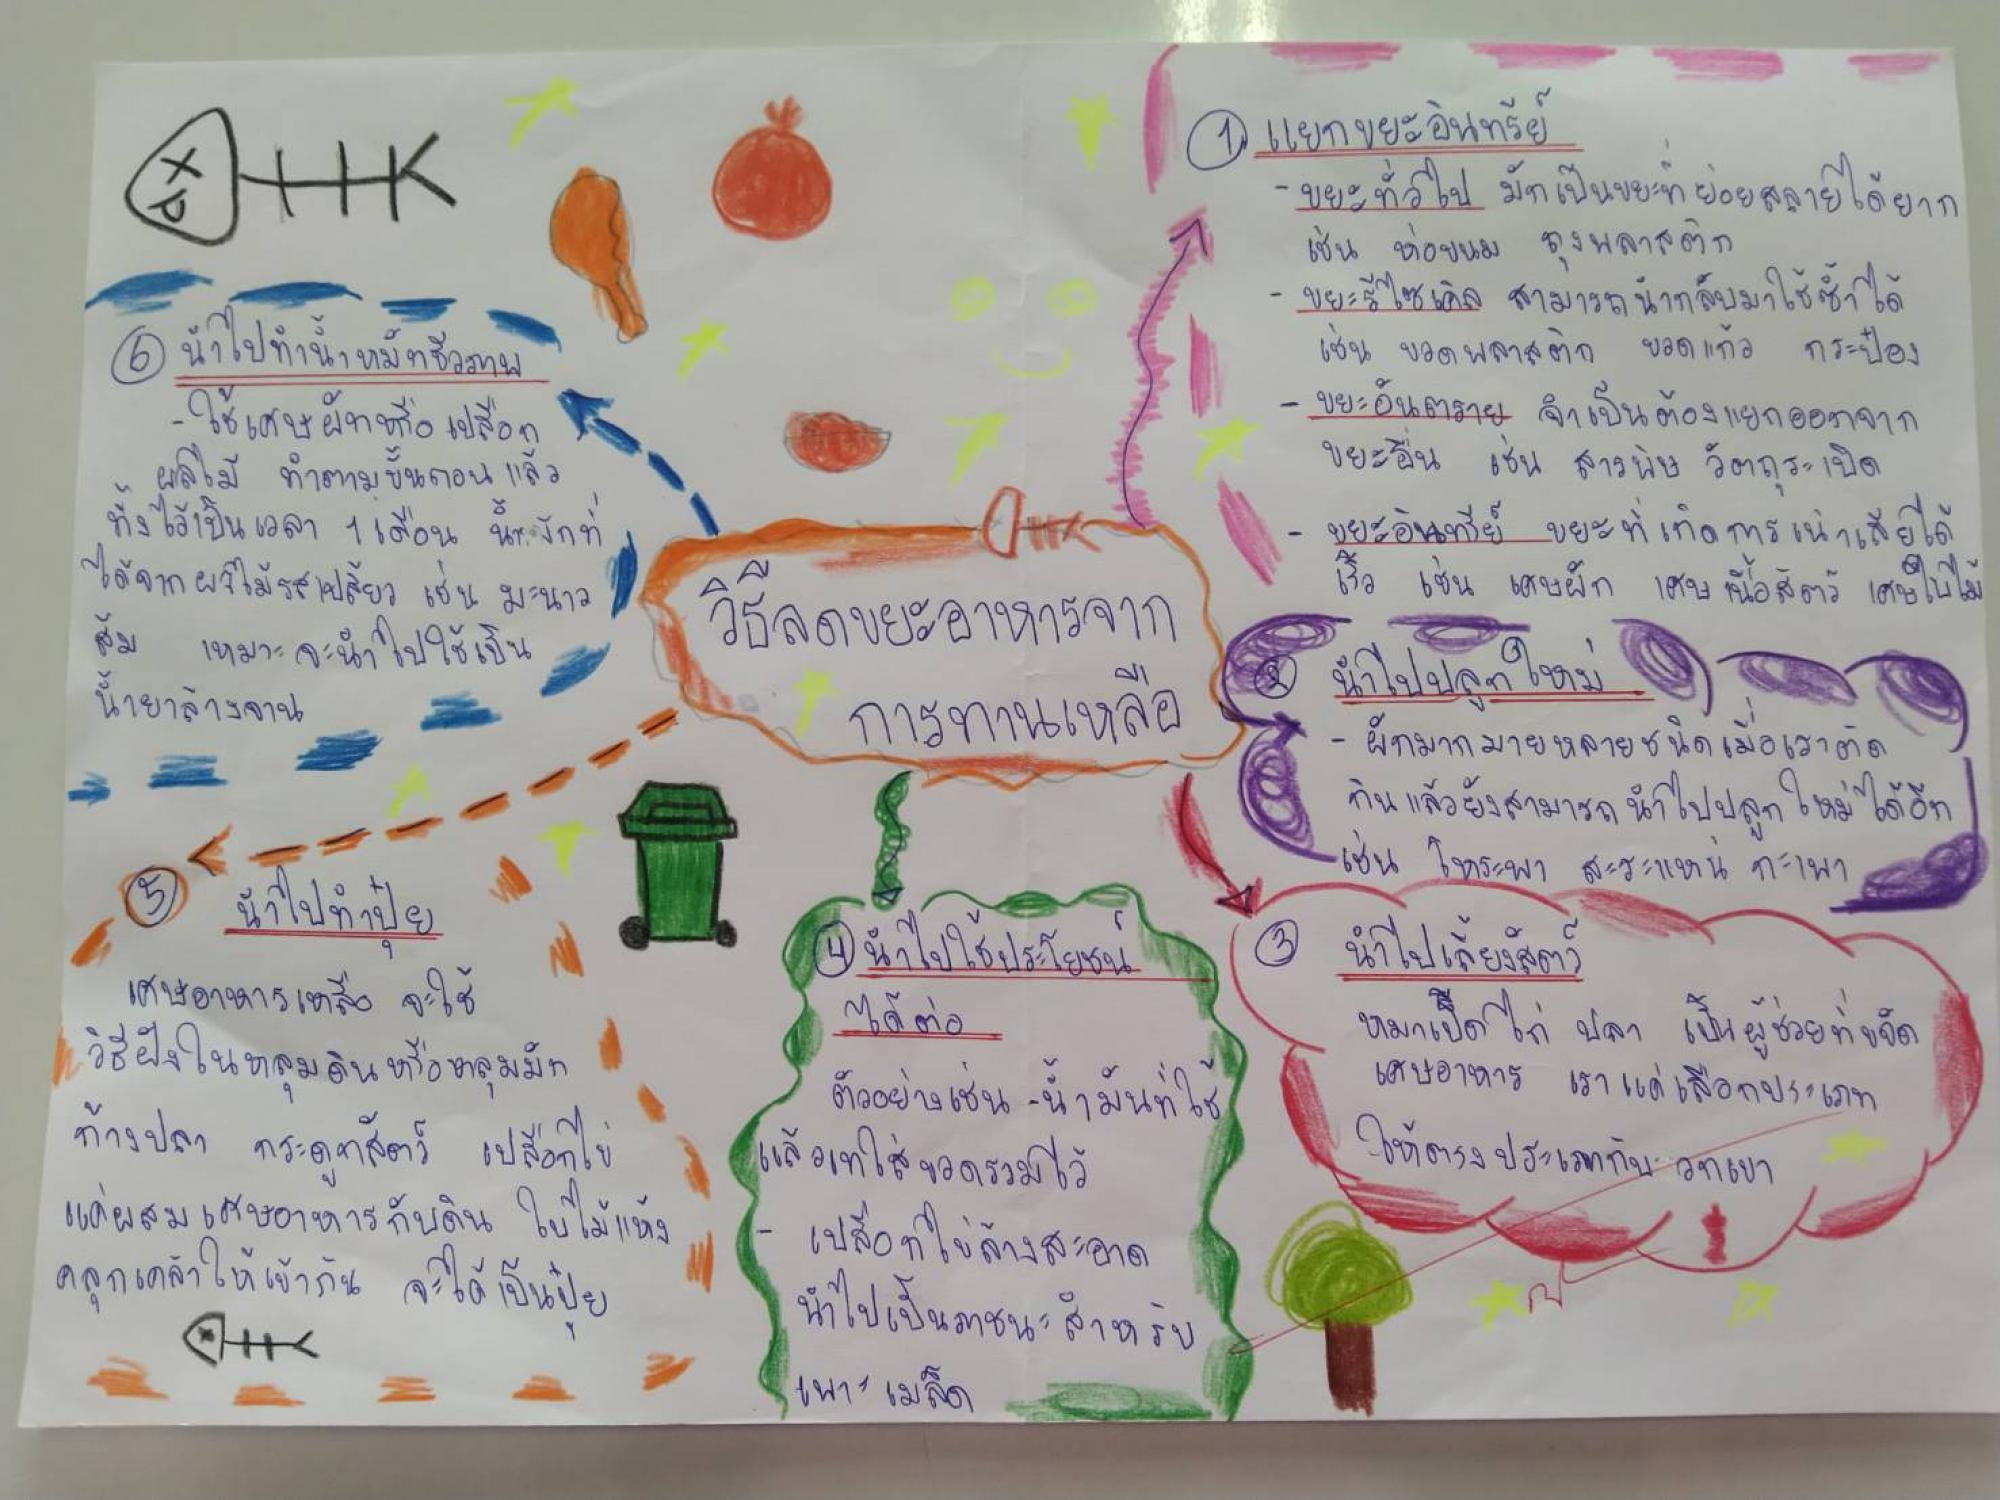 วิธีลดขยะอาหารจาก
การทานเหลือ
① แยกขยะอินทรีย์
- ขยะทั่วไป มักเป็นขยะที่ย่อยสลายได้ยาก
เช่น ห่อขนม ถุงพลาสติก
- ขยะรีไซเคิล สามารถนำกลับมาใช้ซ้ำได้
เช่น ขวดพลาสติก ขวดแก้ว กระป๋อง
- ขยะอันตราย จำเป็นต้องแยกออกจาก
ขยะอื่น เช่น สารพิษ วัตถุระเบิด
- ขยะอินทรีย์ ขยะที่เกิดการเน่าเสียได้
เร็ว เช่น เศษผัก เศษเนื้อสัตว์ เศษใบไม้
② นำไปปลูกใหม่
- ผักมากมายหลายชนิดเมื่อเราตัด
กินแล้วยังสามารถนำไปปลูกใหม่ได้อีก
เช่น โหระพา สะระแหน่ กะเพา
③ นำไปเลี้ยงสัตว์
หมาเป็ดไก่ ปลา เป็นผู้ช่วยที่ขจัด
เศษอาหาร เราแค่เลือกประเภท
ให้ตรงประเภทกับ วกเขา
④ นำไปใช้ประโยชน์
ได้ต่อ
ตัวอย่างเช่น -น้ำมันที่ใช้
แล้วเทใส่ขวดรวมไว้
- เปลือกไข่ล้างสะอาด
นำไปเป็นภาชนะสำหรับ
เพาะเมล็ด
⑤ นำไปทำปุ๋ย
เศษอาหารเหลือ จะใช้
วิธีฝังในหลุมดินหรือหลุมมัก
ก้างปลา กระดูกสัตว์ เปลือกไข่
แค่ผสมเศษอาหารกับดิน ใบไม้แห้ง
คลุกเคล้าให้เข้ากัน จะได้เป็นปุ๋ย
⑥ นำไปทำน้ำหมักชีวภาพ
- ใช้เศษผักหรือเปลือก
ผลไม้ ทำตามขั้นตอนแล้ว
ทิ้งไว้เป็นเวลา 1 เดือน ที่
ได้จากผลไม้รสเปลี้ยว เช่น มะนาว
ส้ม เหมาะจะนำไปใช้เป็น
น้ำยาล้างจาน